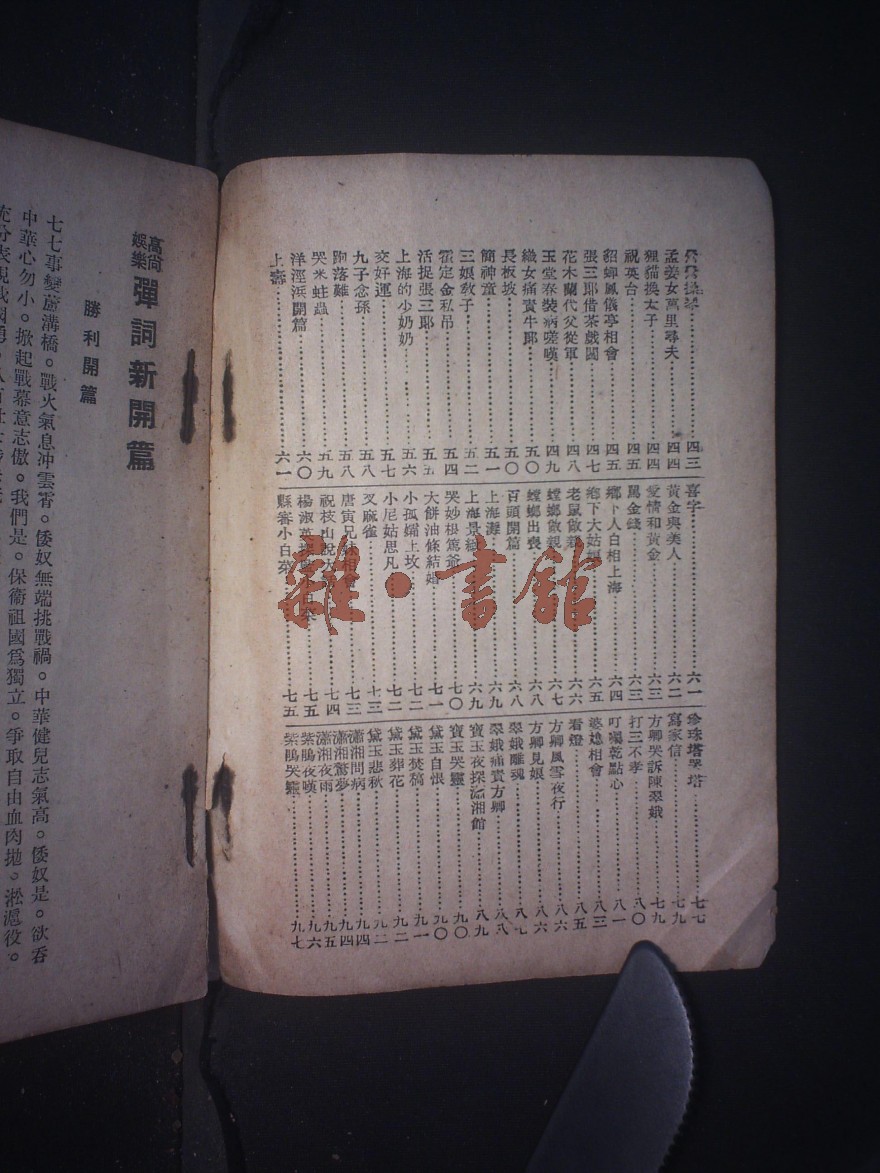 孟姜女萬里尋夫……四四
狸貓換太子……四四
祝英台……四五
貂蟬鳳儀亭相會……四五
張三郎借茶戲闖……四七
花木蘭代父從軍……四八
玉堂春裝病嗟嘆……四九
織女痛責牛郎……五〇
長板坡……五〇
簡神童……五一
三娘敎子……五二
霍定金私吊……五四
活捉張三郎……五五
上海的少奶奶……五六
交好運……五七
九子念孫……五八
跑落難……五八
哭米蛀蟲……五九
洋涇浜開篇……六〇
上壽……六一
喜字……六一
黃金與美人……六二
愛情和黃金……六三
罵金錢……六三
鄉下人白相上海……六四
鄉下大姑娘……六五
老鼠做親……六六
螳螂做親……六七
螳螂出喪……六八
百頭開篇……六八
上海灘……六九
上海景緻……六九
哭妙根篤爺……七〇
大餅油條結婚……七一
小孤孀上坟……七二
小尼姑思凡……七二
叉麻雀……七三
唐寅兄妹相會……七三
祝枝山說大……七四
楊淑英……七五
縣審小白菜……七五
珍珠塔哭塔……七七
寫家信……七九
方卿哭訴陳翠娥……七九
打三不孝……八〇
叮囑乾點心……八一
婆媳相會……八三
看燈……八五
方卿風雪夜行……八六
方卿見娘……八六
翠娥離魂……八七
翠娥痛責方卿……八八
寶玉夜探瀟湘館……八九
寶玉哭靈……九〇
黛玉自恨……九〇
黛玉焚稿……九一
黛玉葬花……九二
黛玉悲秋……九二
瀟湘問病……九四
瀟湘驚夢……九四
瀟湘夜雨……九五
紫鵑夜嘆……九六
紫鵑哭靈……九七
高尙娛樂 彈詞新開篇
勝利開篇
七七事變蘆溝橋。戰火氣息沖雲霄。倭奴無端挑戰禍。中華健兒志氣高。倭奴是。欲吞
中華心勿小。掀起戰幕意志傲。我們是。保衞祖國爲獨立。爭取自由血肉拋。淞滬役。
雜·書館